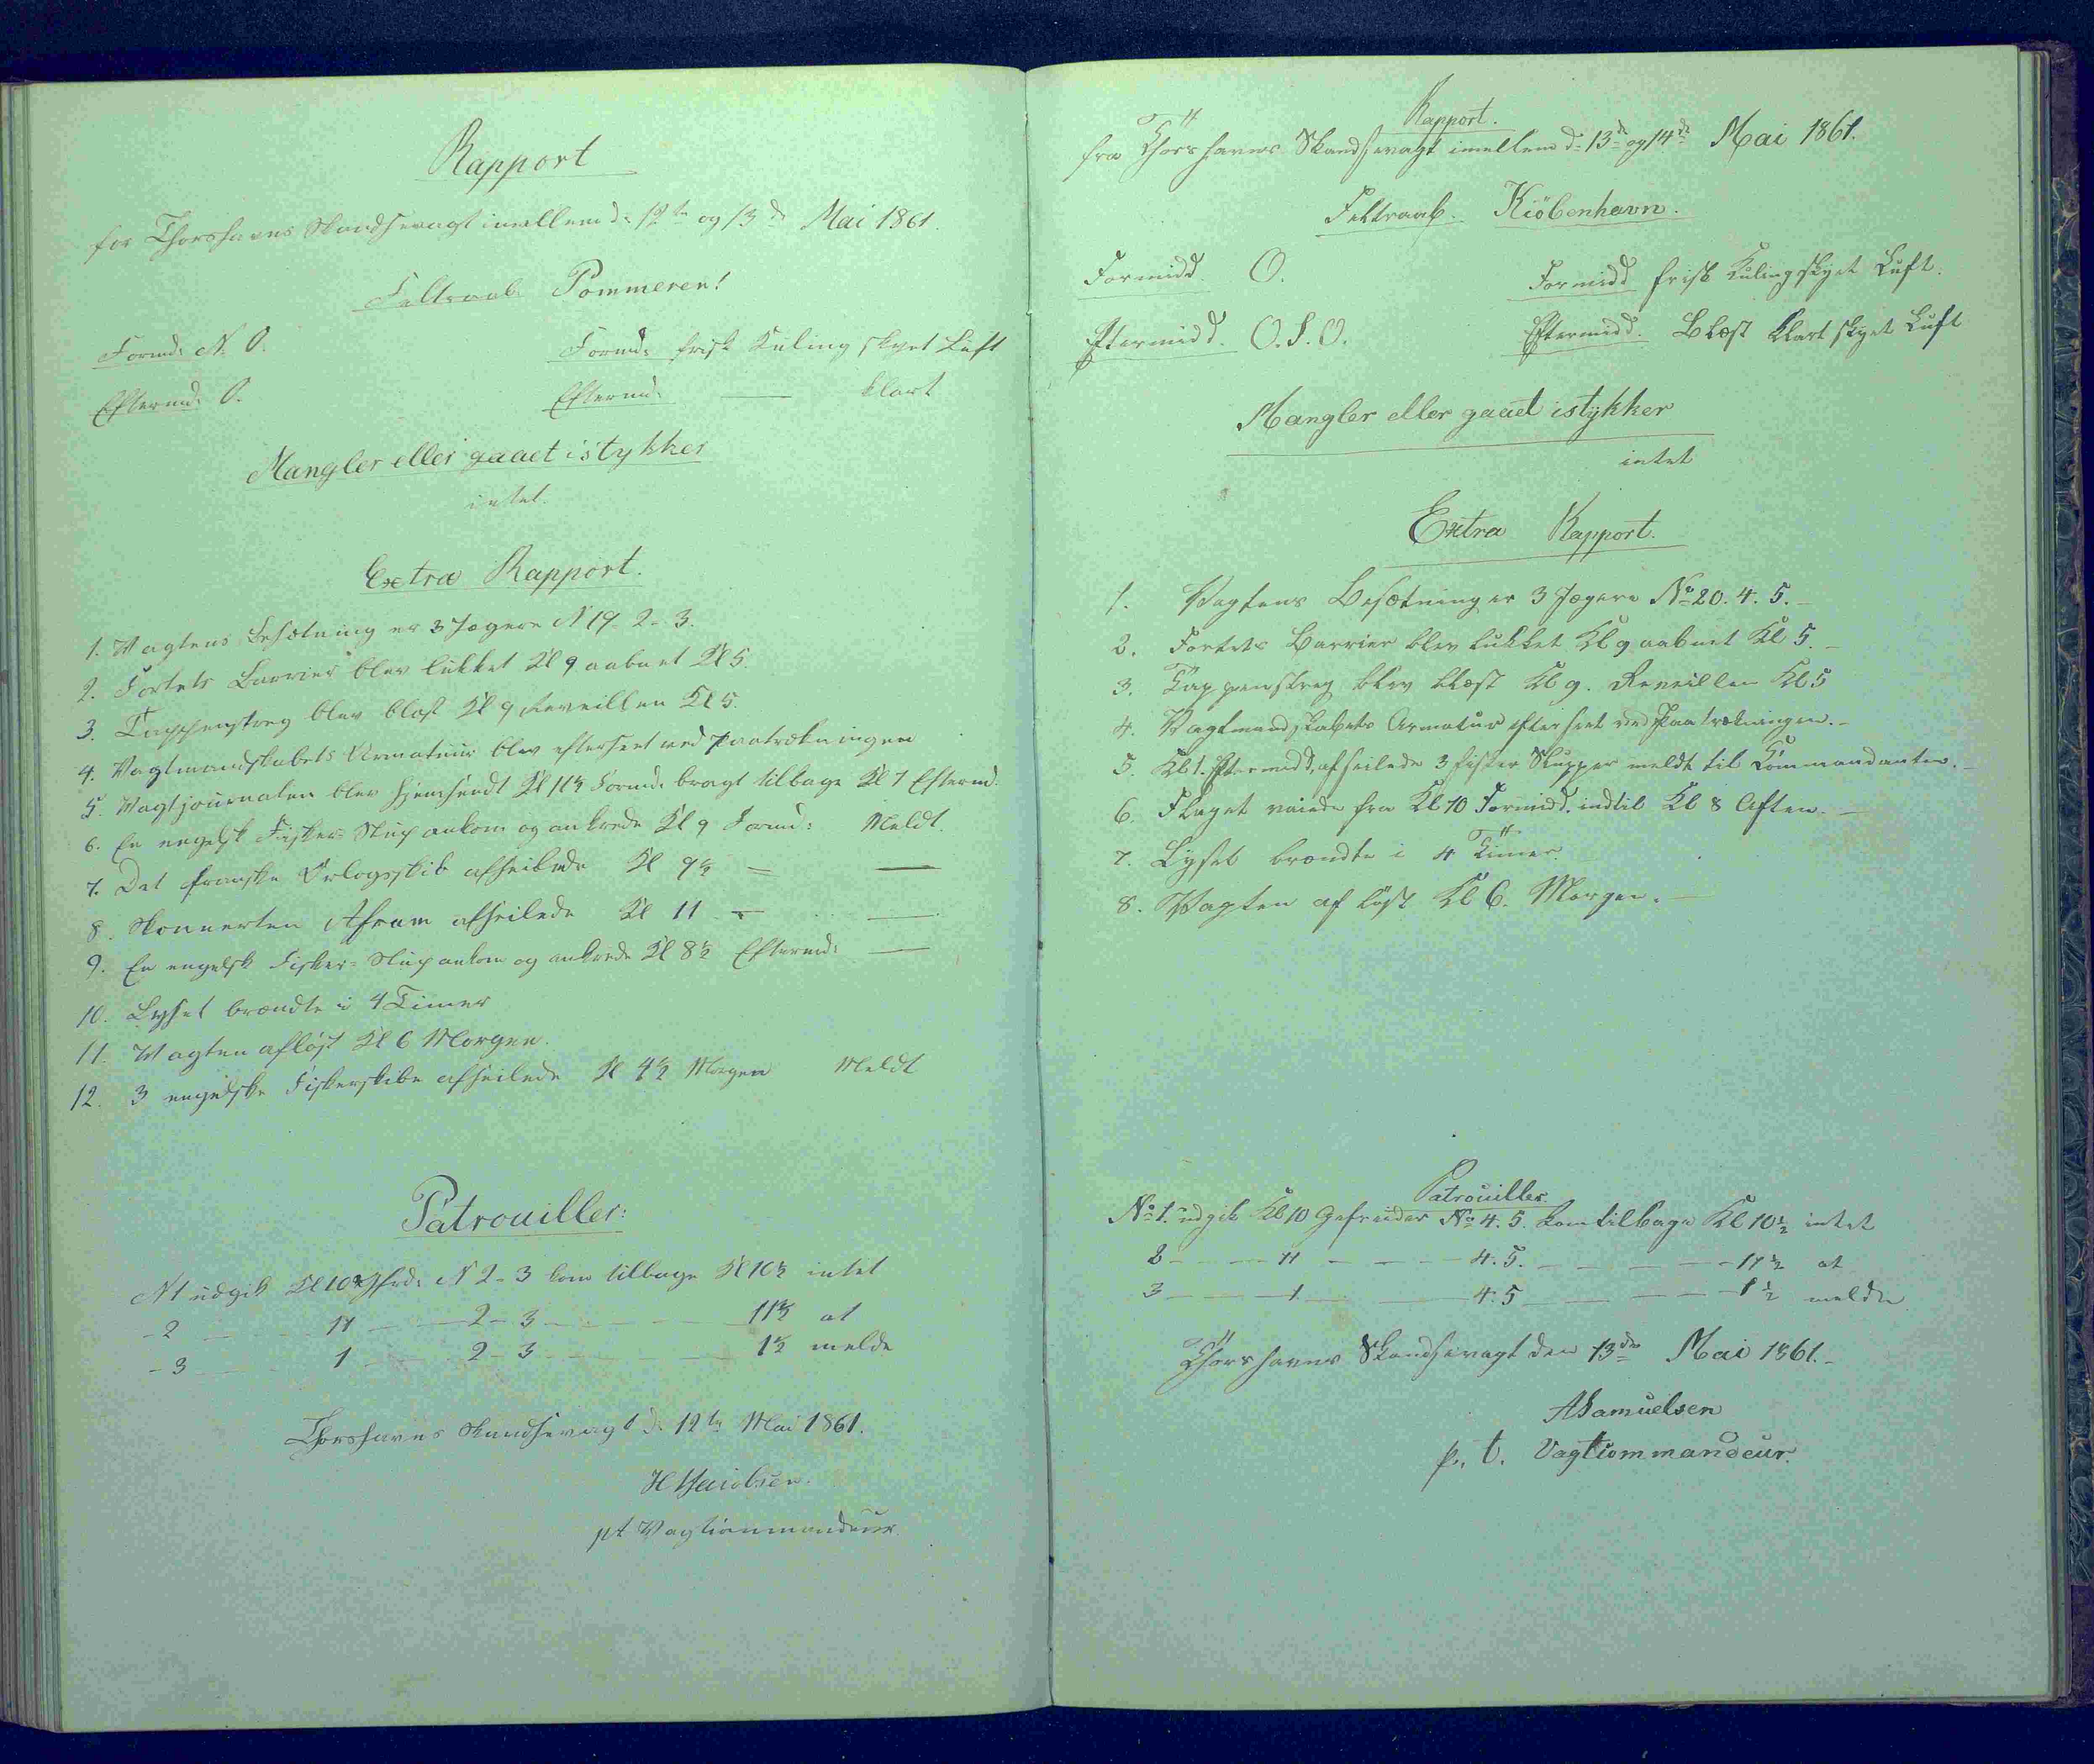 Rapport
for Thorshavns Skandsevagt imellem d: 12te og 13de Mai 1861.
Feltraab Pommeren!
Formd: N. O. Formd: frisk Kuling skyet Luft
Eftermd: O. Eftermd: — klart
Mangler eller gaaet istykker
intet.
Extra Rapport.
1. Vagtens Besætning er 3 Jægere N 19-2-3.
2. Fortets Barrier blev lukket Kl 9 aabnet Kl 5.
3. Tappenstreg blev blæst Kl 9 Reveillen Kl 5.
4. Vagtmandskabets Armatuur blev efterseet ved Paatrækningen
5. Vagtjournalen blev hjemsendt Kl 11½ Formd. bragt tilbage Kl 1 Eftermd.
6. En engelsk Fisker-Slup ankom og ankrede Kl 9 Formd: Meldt.
7. Det franske Orlogsskib afseilede Kl 9½ = —
8. Skonnerten Afram afseilede Kl 11 - —
9. En engelsk Fisker-Slup ankom og ankrede Kl 8½ Eftermd: —
10. Lyset brændte i 4 Timer
11. Vagten afløst Kl 6 Morgen.
12. 3 engelske Fiskerskibe afseilede Kl 4½ Morgen Meldt
Patrouiller:
N1 udgik Kl 10 Gfrd: N 2-3 kom tilbage Kl 10½ intet
-2 — 11 — 2-3 — 11½ at
-3 — 1 — 2-3 — 1½ melde
Thorshavns Skandsevagt d: 12te Mai 1861.
H Jacobsen.
pt Vagtcommandeur.
Rapport.
fra Thorshavns Skandsevagt imellem d: 13de og 14de Mai 1861.
Feltraab. Kiöbenhavn.
Formidd. O. Formidd frisk Kuling skyet Luft.
Eftermidd. O.S.O. Eftermidd. Blæst klart skyet Luft
Mangler eller gaaet istykker
intet
Extra Rapport.
1. Vagtens Besætning er 3 Jægere No 20. 4. 5. -
2. Fortets Barrier blev lukket Kl 9 aabnet Kl 5. -
3. Tappenstreg blev blæst Kl 9. Reveillen Kl 5
4. Vagtmandskabets Armatur efterseet ved Paatrækningen. -
5. Kl 1. Eftermidd, afseilede 3 fisker Slupper meldt til Kommandanten. -
6. Flaget vaiede fra Kl 10 Formidd. indtil Kl 8 Aften. -
7. Lyset brændte i 4 Timer.
8. Vagten afløst Kl 6. Morgen. -
Patrouiller.
No 1. udgik Kl 10 Gefreider No 4. 5. kom tilbage Kl 10½ intet
2 — 11 — 4. 5. — 11½ at
3 — 1 — 4. 5 — 1½ melde
Thorshavns Skandsevagt den 13de Mai 1861. -
A Samuelsen
p. t. Vagtcommandeur.